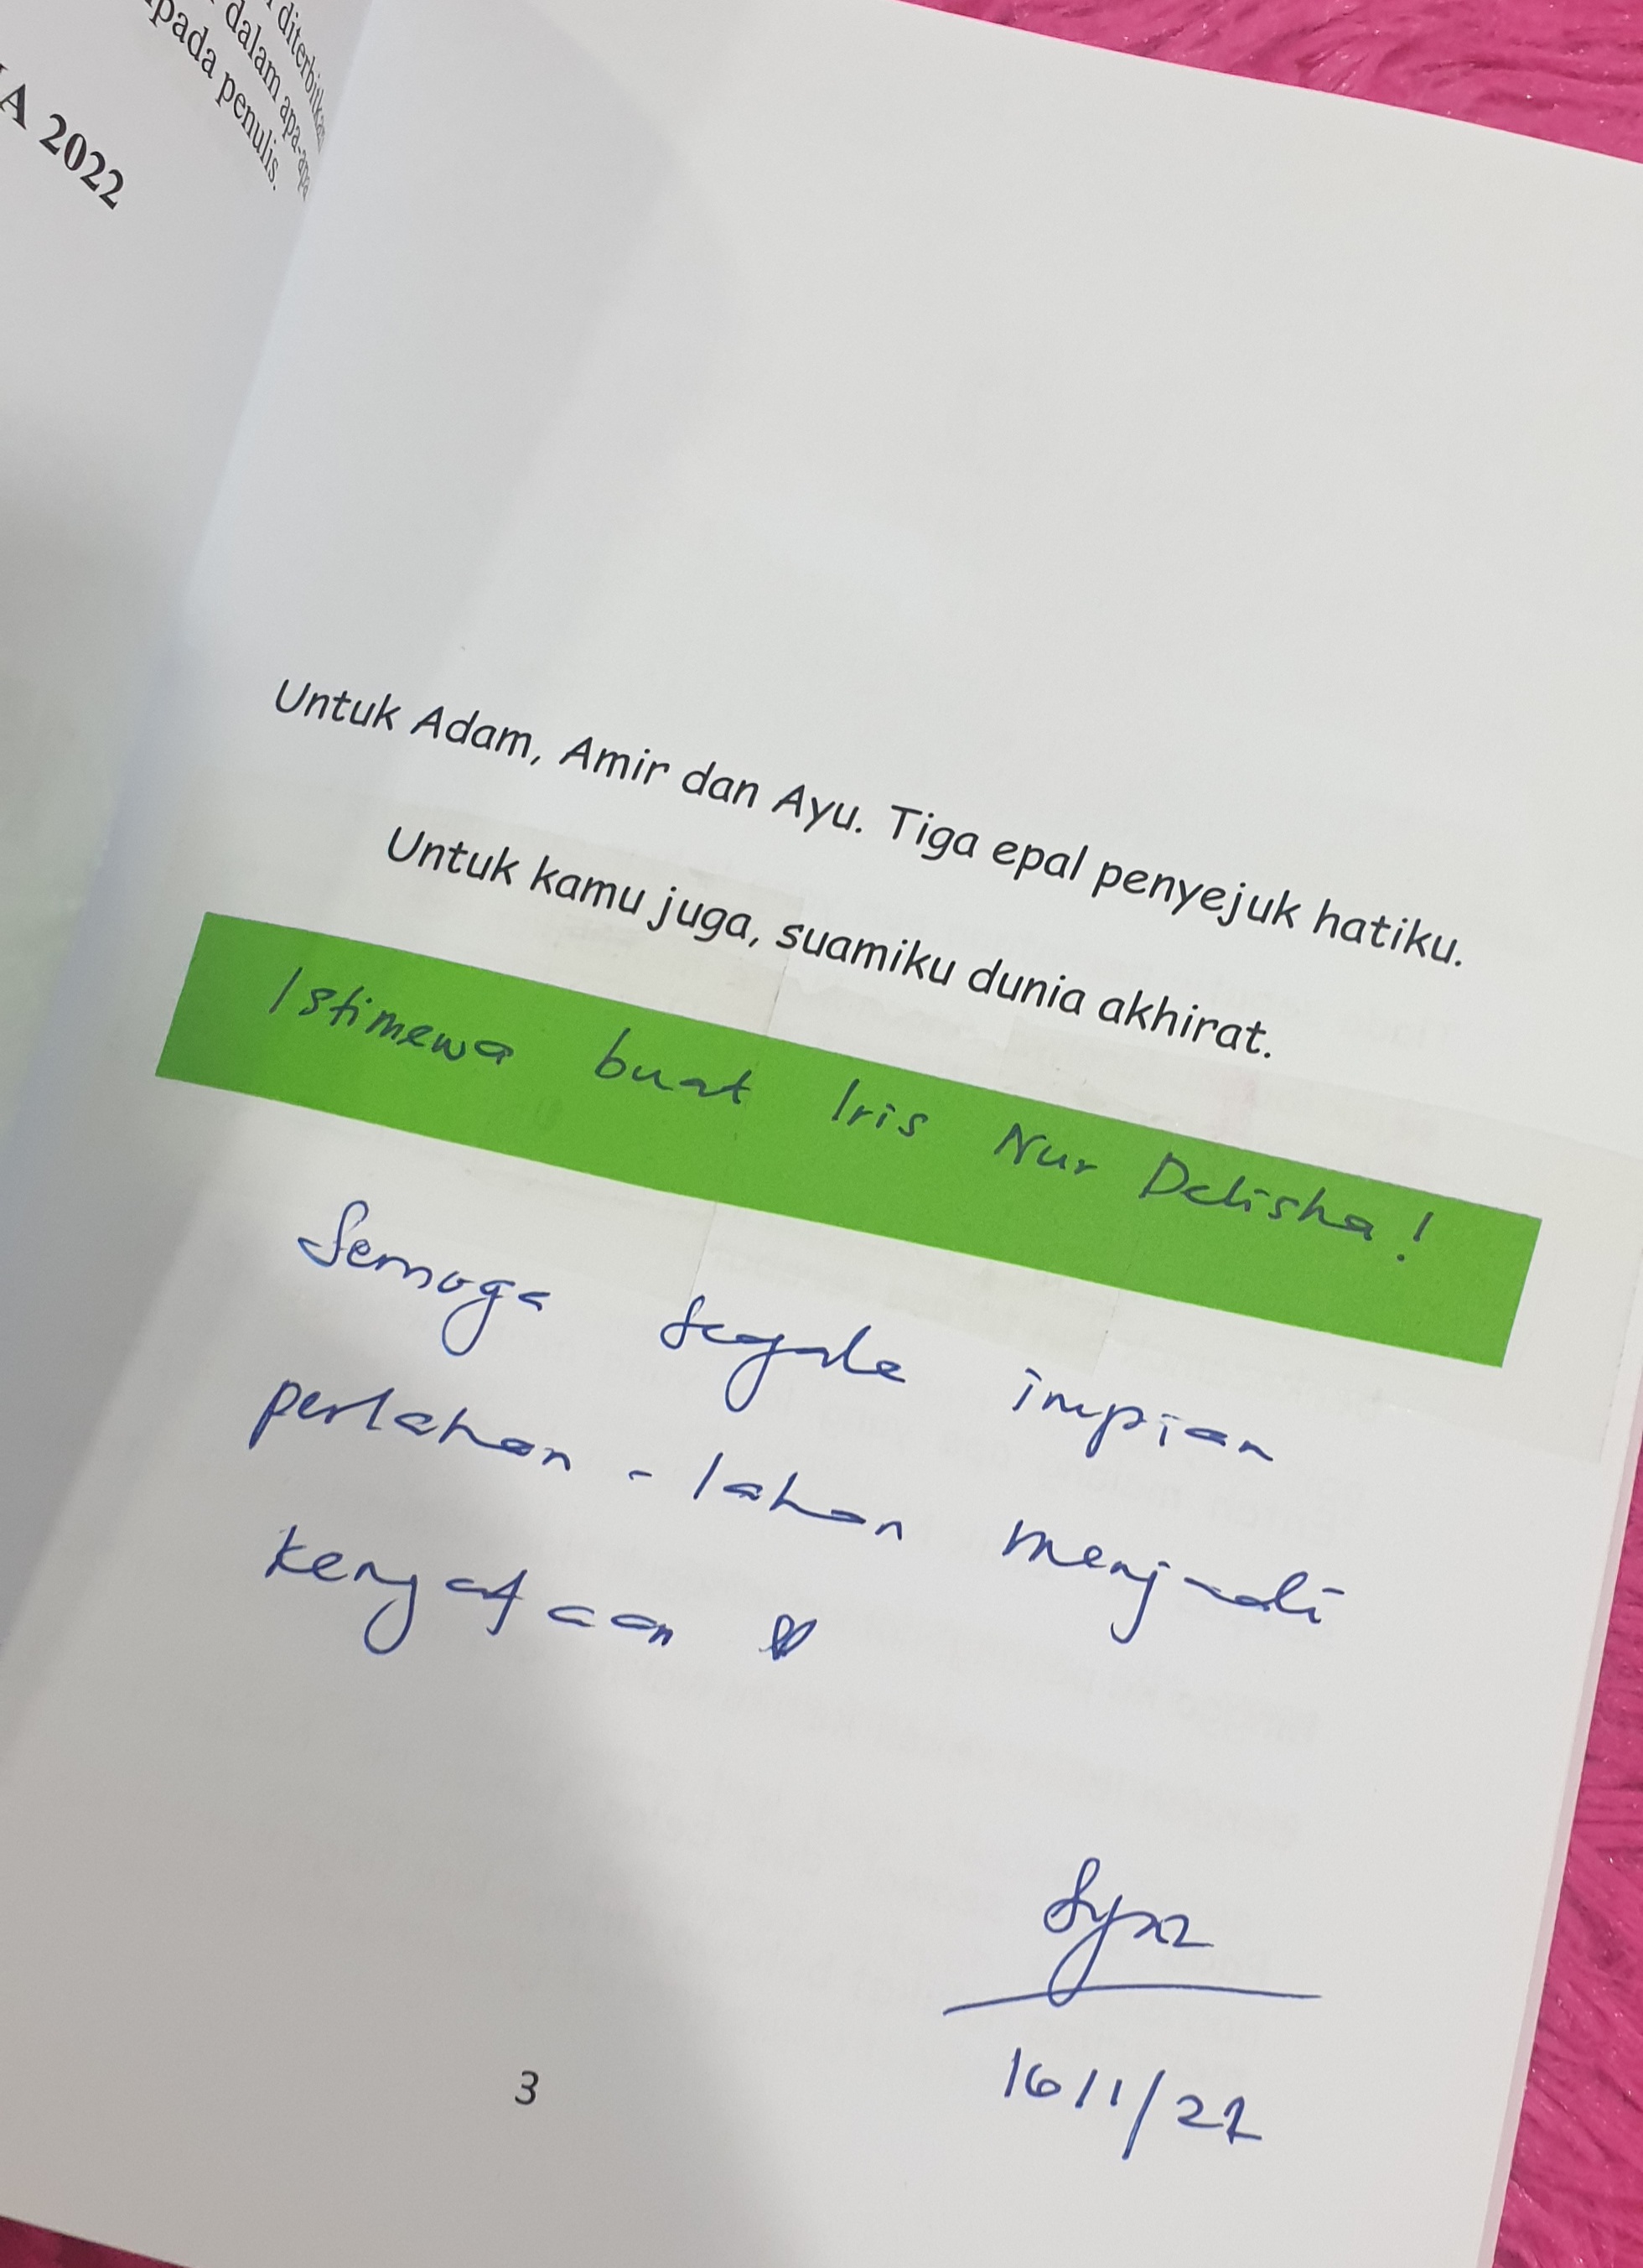 diterbitkan
dalam apa-apa
pada penulis.
A 2022
Untuk Adam, Amir dan Ayu. Tiga epal penyejuk hatiku.
Untuk kamu juga, suamiku dunia akhirat.
Istimewa buat Iris Nur Delisha!
Semoga segala impian
perlahan-lahan menjadi
kenyataan
16/1/22
3